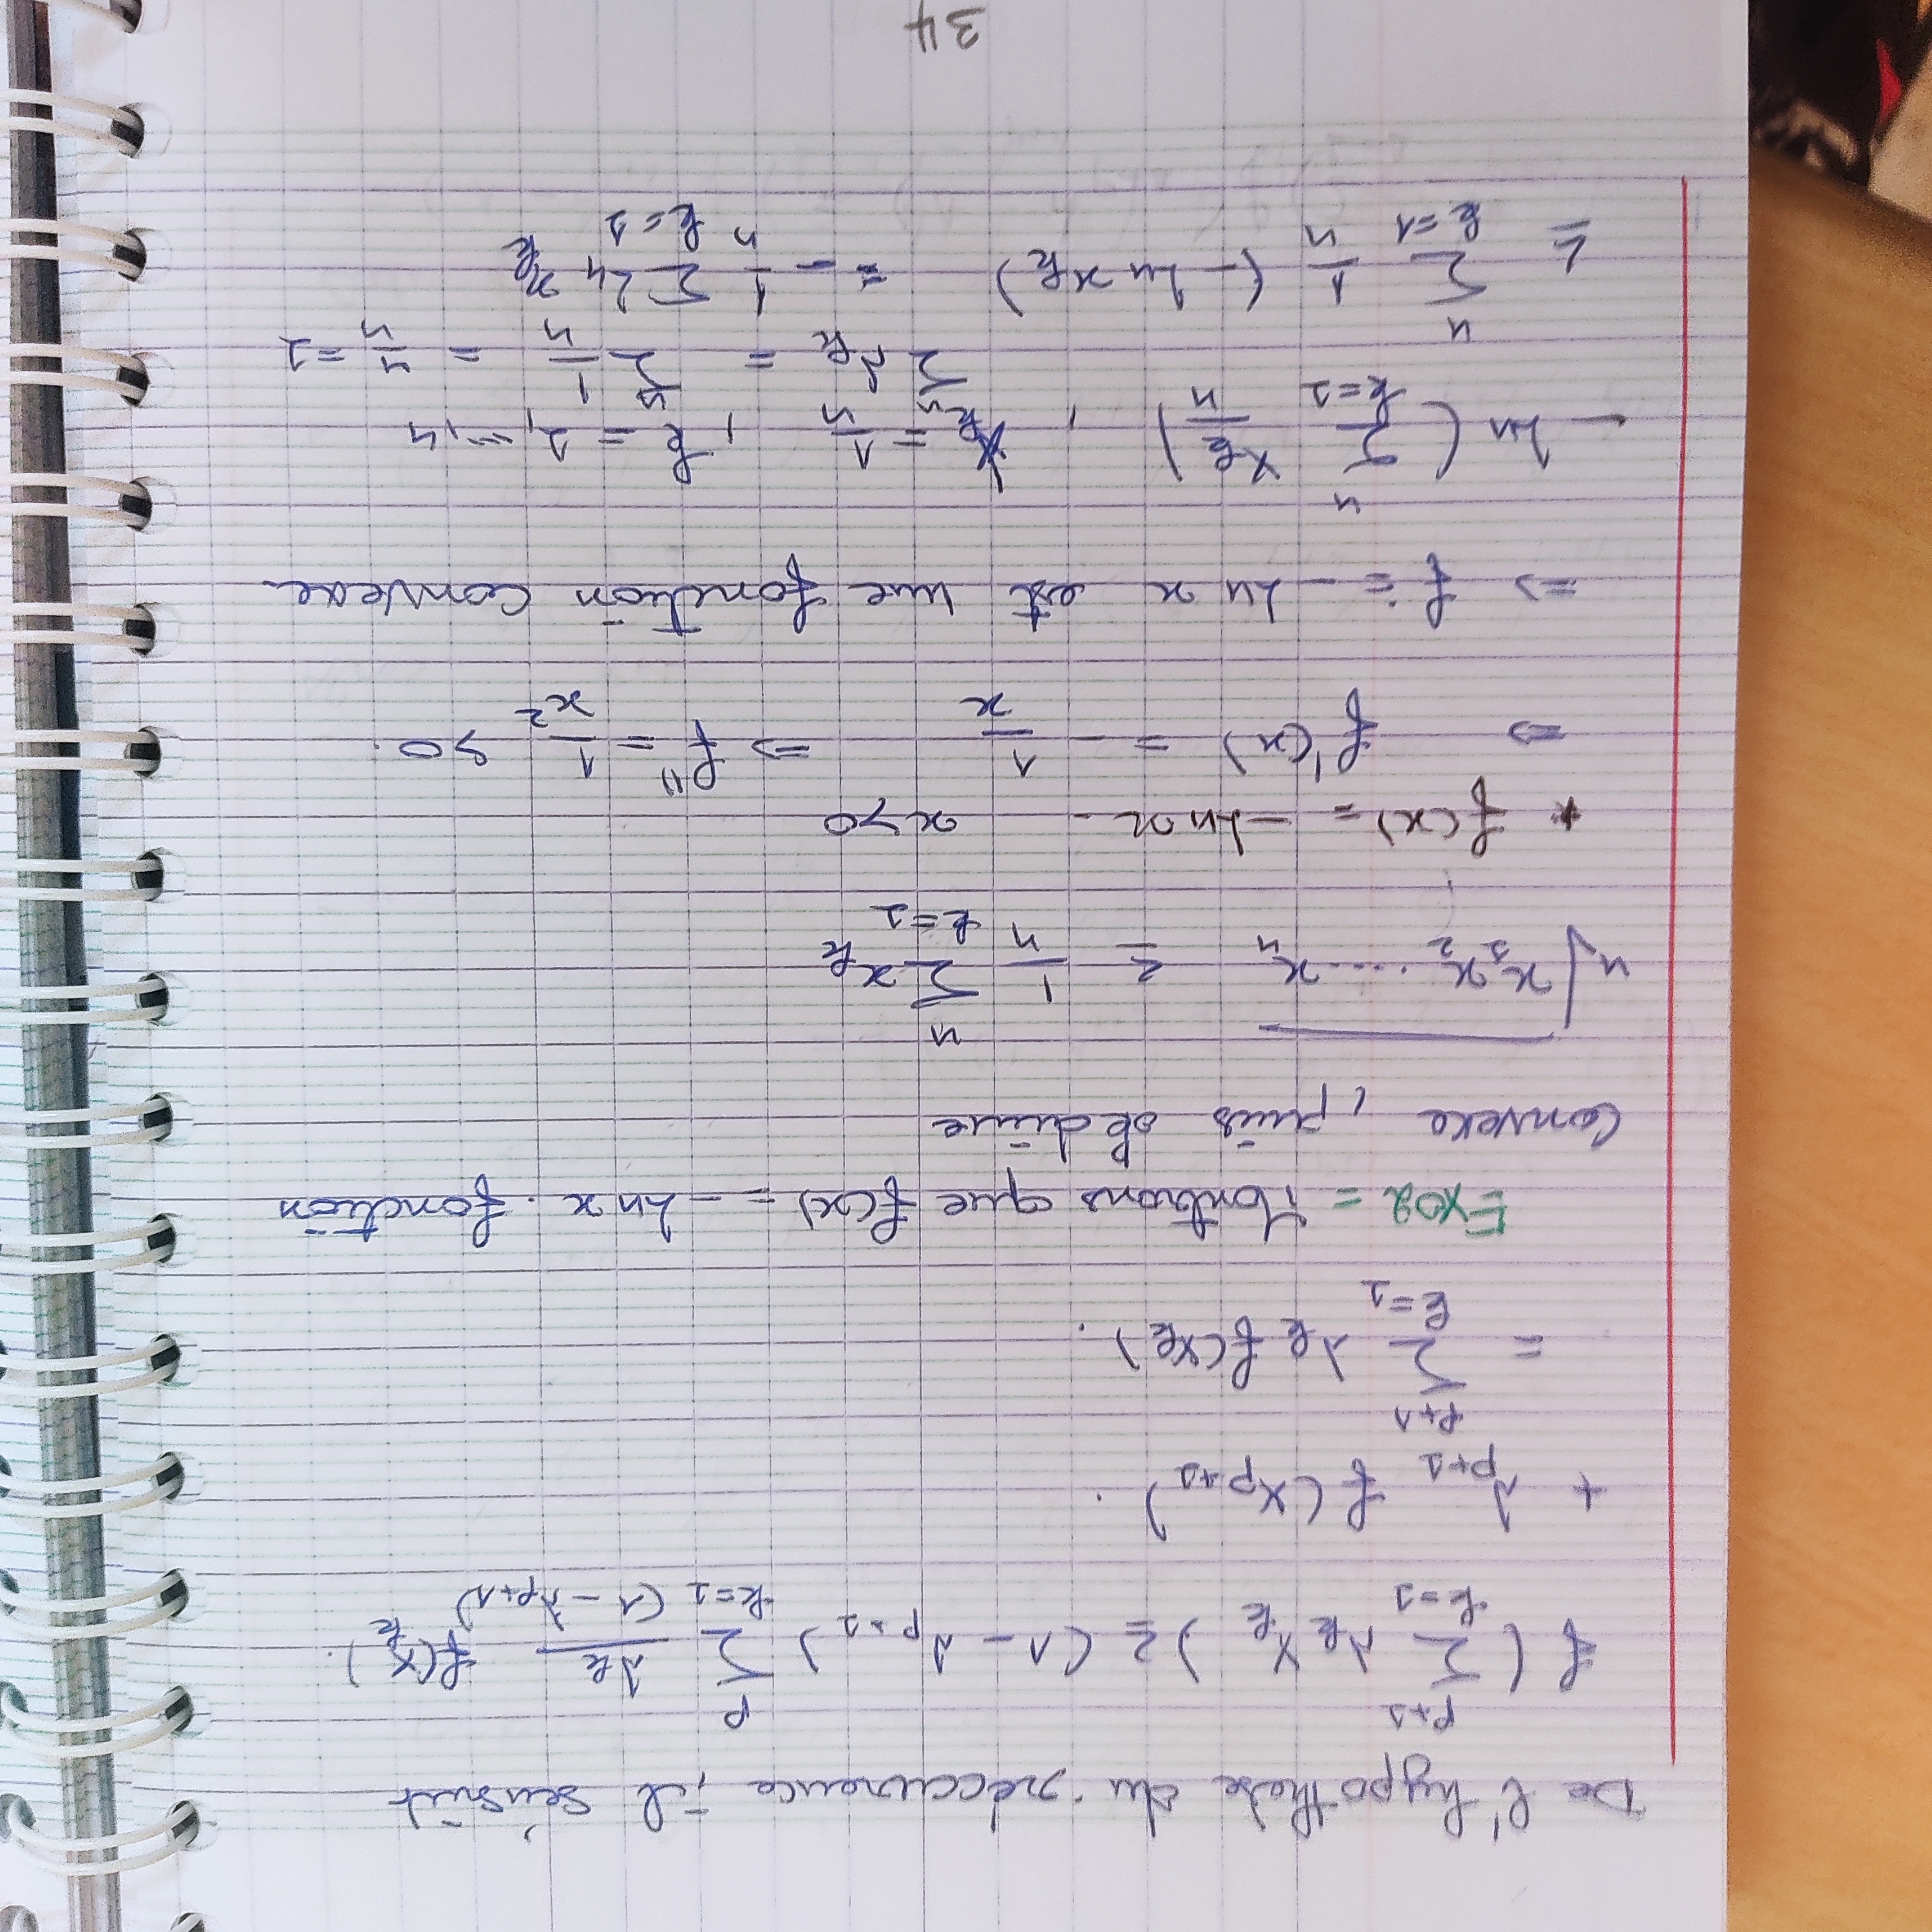 De l'hypothèse du réccurence, il s'ensuit
f ( \sum_{k=1}^{p+1} λ_k x_k ) ≤ (1 - λ_{p+1}) \sum_{k=1}^{p} \frac{λ_k}{(1 - λ_{p+1})} f(x_k).
+ λ_{p+1} f(x_{p+1}).
= \sum_{k=1}^{p+1} λ_k f(x_k).
Exo2 = Montrons que f(x) = -Ln x. fonction
Convexe, puis
\sqrt[n]{x_1 x_2 ..... x_n} ≤ \frac{1}{n} \sum_{k=1}^{n} x_k
* f(x) = -Ln x - x > 0
⇒ f'(x) = - \frac{1}{x} ⇒ f'' = \frac{1}{x^2} > 0.
⇒ f = -Ln x est une fonction convexe
- Ln ( \sum_{k=1}^{n} \frac{x_k}{n} ) , λ_k = \frac{1}{n} , k = 1, ..., n
\sum^{n} λ_k = \sum^{n} \frac{1}{n} = \frac{n}{n} = 1
≤ \sum_{k=1}^{n} \frac{1}{n} (-Ln x_k) = - \frac{1}{n} \sum_{k=1} Ln x_k
34